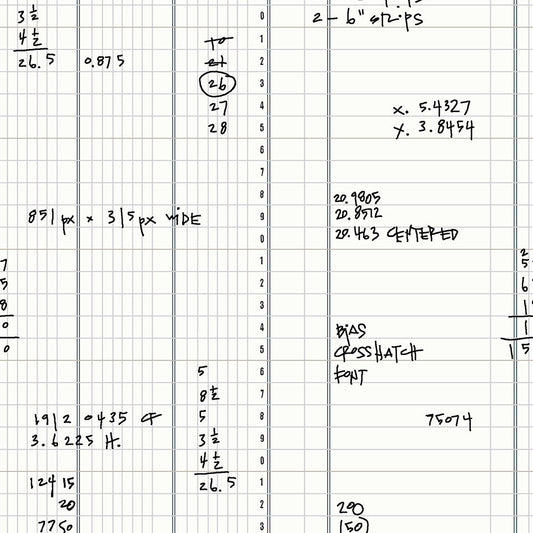 3 ½
4 ½
26.5 0.875
0
1
2
3
4
5
6
7
8
9
0
1
2
3
4
5
6
7
8
9
0
1
2
3
10
21
26
27
28
2 - 6" strips
x. 5.4327
y. 3.8454
851px x 315px WIDE
20.9805
20.8512
20.463 CENTERED
7
5
8
0
0
BIAS
CROSSHATCH
FONT
5
8 ½
5
3 ½
4 ½
26.5
1912 0435 CF
3.6225 H.
12415
20
7750
75074
200
150
2
5
6
1
1
15